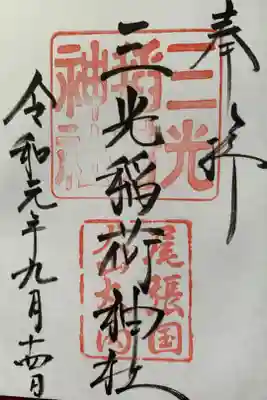 奉拝
三光稲荷神社
令和元年九月十四日
三光
稲荷
神社
尾張国